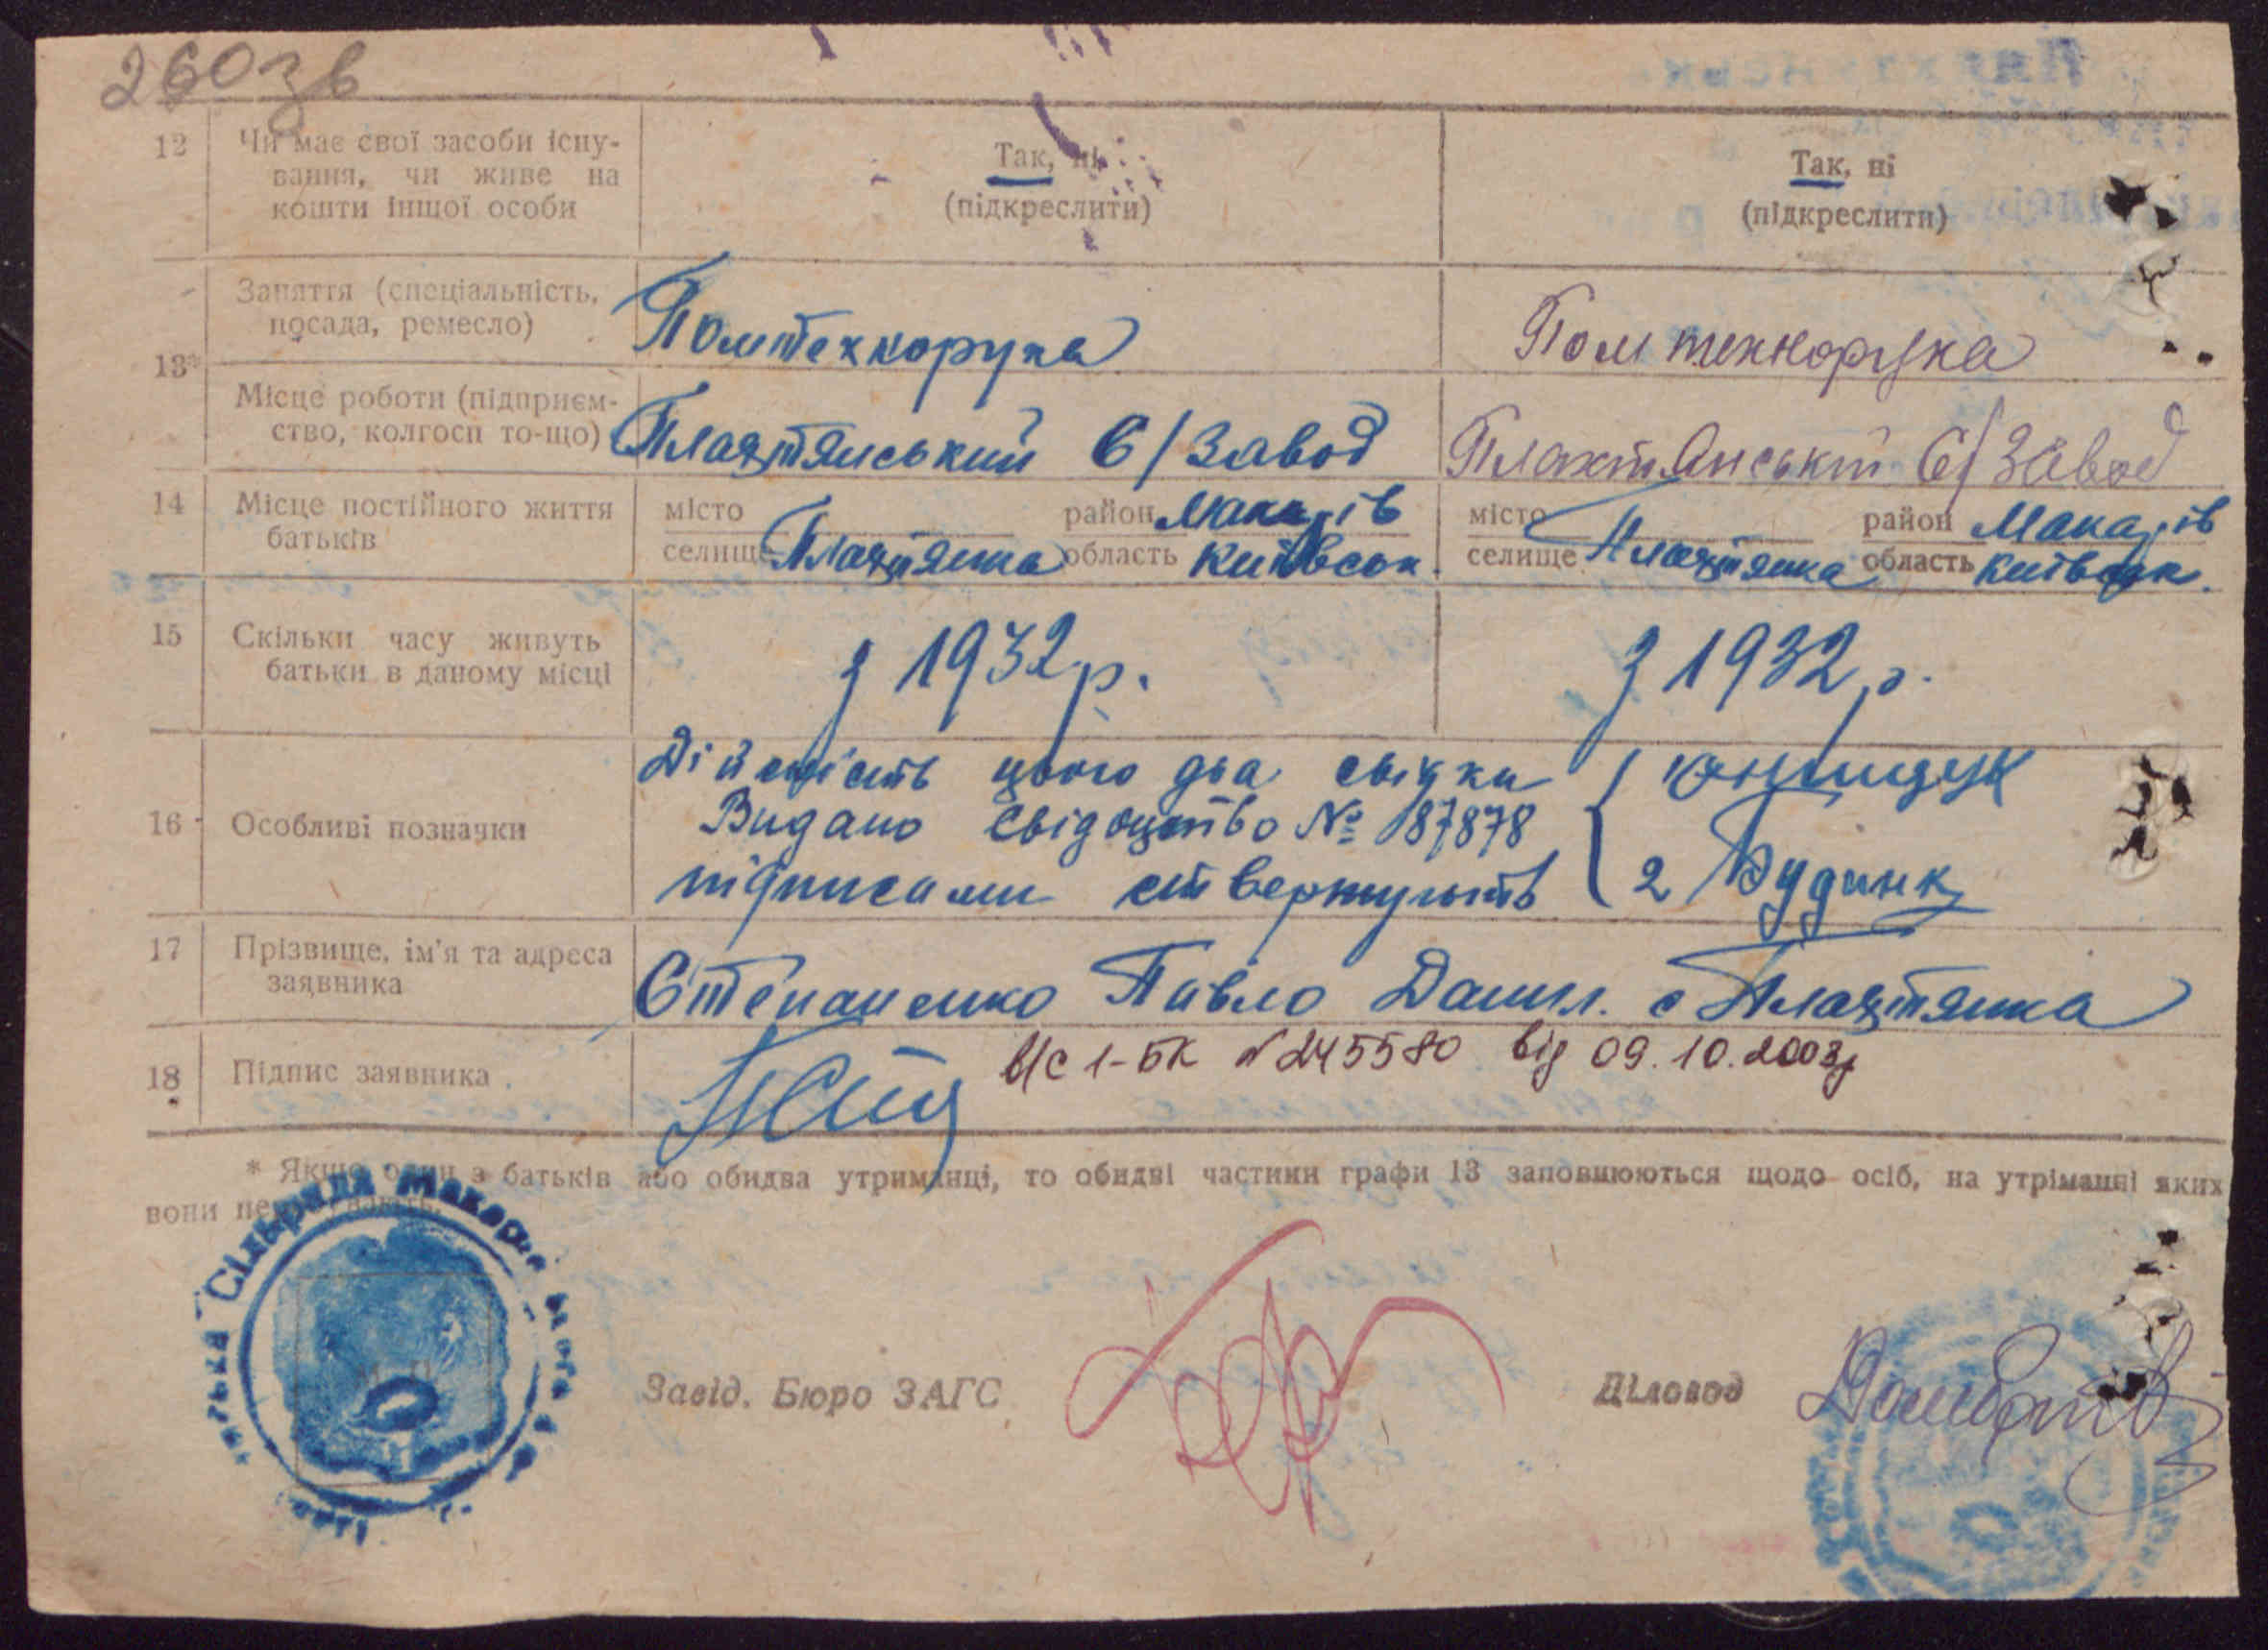 260зв
12 Чи має свої засоби існу- Так, ні Так, ні
вання, чи живе на (підкреслити) (підкреслити)
кошти іншої особи
13* Заняття (спеціальність, Помтехкорука Пом технорука
посада, ремесло)
Місце роботи (підприєм- Плахтянський С/Завод Плахтянський С/Завод
ство, колгосп то-що)
14 Місце постійного життя місто район Макарів місто район Макарів
батьків селище Плахтянка область Київськ селище Плахтянка область Київськ.
15 Скільки часу живуть з 1932 р. з 1932 р.
батьки в даному місці
16 Особливі позначки Дійсність цього два свідки
Видано Свідоцтво № 87878
підписами ствержують 2
17 Прізвище, ім'я та адреса Степаненко Павло Данил. с Плахтянка
заявника
18 Підпис заявника в/с 1-БК № 245580 від 09.10.2003р
* Якщо один з батьків або обидва утриманці, то обидві частини графи 13 заповнюються щодо осіб, на утріманні яких
вони
Сільрада Макарів
М. П.
Завід. Бюро ЗАГС Діловод